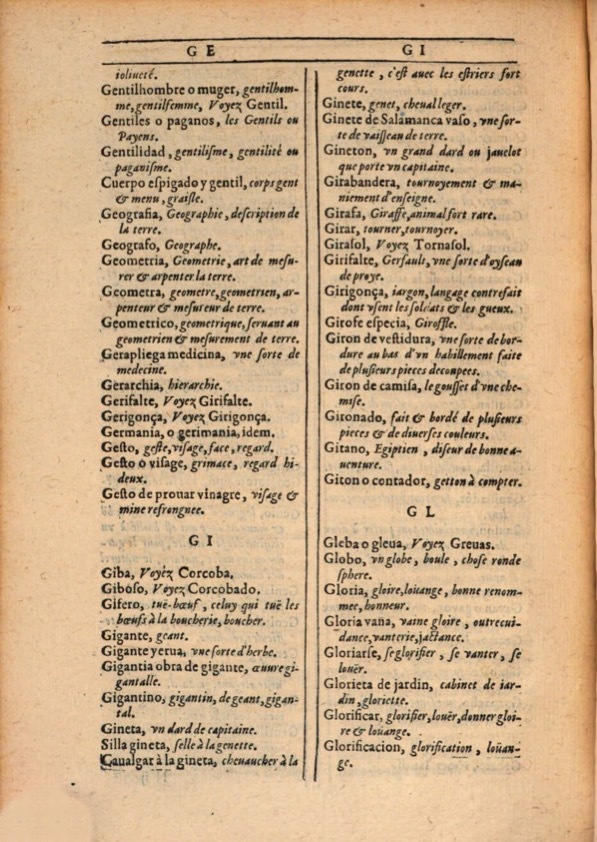 GE
GI
ioliueté.
Gentilhombre o muger, gentilhom-
me, gentilfemme, Voyez Gentil.
Gentiles o paganos, les Gentils ou
Payens.
Gentilidad, gentilisme, gentilité ou
paganisme.
Cuerpo espigado y gentil, corps gent
& menu, graisle.
Geografia, Geographie, description de
la terre.
Geografo, Geographe.
Geometria, Geometrie, art de mesu-
rer & arpenter la terre.
Geometra, geometre, geometrien, ar-
penteur & mesureur de terre.
Geometrico, geometrique, seruant au
geometrien & mesurement de terre.
Gerapliega medicina, vne sorte de
medecine.
Gerarchia, hierarchie.
Gerifalte, Voyez Girifalte.
Gerigonça, Voyez Girigonça.
Germania, o gerimania, idem.
Gesto, geste, visage, face, regard.
Gesto o visage, grimace, regard hi-
deux.
Gesto de prouar vinagre, visage &
mine refrongnee.
GI
Giba, Voyez Corcoba.
Giboso, Voyez Corcobado.
Gifero, tuë-bœuf, celuy qui tuë les
bœufs à la boucherie, boucher.
Gigante, geant.
Gigante yerua, vne sorte d'herbe.
Gigantia obra de gigante, œuure gi-
gantalle.
Gigantino, gigantin, de geant, gigan-
tal.
Gineta, vn dard de capitaine.
Silla gineta, selle à la genette.
Caualgar à la gineta, cheuaucher à la
genette, c'est auec les estriers fort
cours.
Ginete, genet, cheual leger.
Ginete de Salamanca vaso, vne sor-
te de vaisseau de terre.
Gineton, vn grand dard ou jauelot
que porte vn capitaine.
Girabandera, tournoyement & ma-
niement d'enseigne.
Girafa, Giraffe, animal fort rare.
Girar, tourner, tournoyer.
Girasol, Voyez Tornasol.
Girifalte, Gerfault, vne sorte d'oyseau
de proye.
Girigonça, iargon, langage contrefait
dont vsent les soldats & les gueux.
Girofe especia, Giroffle.
Giron de vestidura, vne sorte de bor-
dure au bas d'vn habillement faite
de plusieurs pieces decoupees.
Giron de camisa, le gousset d'vne che-
mise.
Gironado, fait & bordé de plusieurs
pieces & de diuerses couleurs.
Gitano, Egiptien, diseur de bonne a-
uenture.
Giton o contador, getton à compter.
GL
Gleba o gleua, Voyez Greuas.
Globo, vn globe, boule, chose ronde
sphere.
Gloria, gloire, loüange, bonne renom-
mee, honneur.
Gloria vana, vaine gloire, outrecui-
dance, vanterie, jactance.
Gloriarse, se glorifier, se vanter, se
louër.
Glorieta de jardin, cabinet de iar-
din, gloriette.
Glorificar, glorifier, louër, donner gloi-
re & loüange.
Glorificacion, glorification, loüan-
ge.